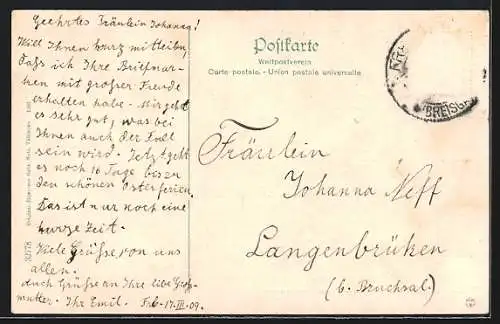 Geehrtes Fräulein Johanna!
Will Ihnen kurz mitteilen,
daß ich Ihre Briefmar-
ken mit großer Freude
erhalten habe. Mir geht
es sehr gut, was bei
Ihnen auch der Fall
sein wird. Jetzt geht
es noch 16 Tage bis zu
den schönen Osterferien.
Das ist nur noch eine
kurze Zeit.
Viele Grüße von uns
allen.
Auch Grüße an Ihre libe Groß-
mutter. Ihr Emil. Frb. 17.III.09.
Postkarte
Weltpostverein
Carte postale. - Union postale universelle
BREISG
Fräulein
Johanna Neff
Langenbrüken
(b. Bruchsal.)